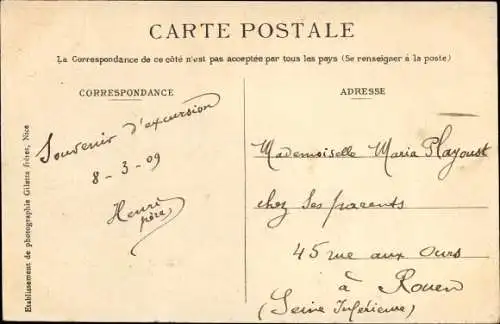 CARTE POSTALE
La Correspondance de ce côté n'est pas acceptée par tous les pays (Se renseigner à la poste)
CORRESPONDANCE
Souvenir d'excursion
8-3-09
Henri
père
ADRESSE
Mademoiselle Maria Playoust
chez ses parents
45 rue aux Ours
à Rouen
(Seine Inférieure)
Etablissement de photographie Giletta frères, Nice